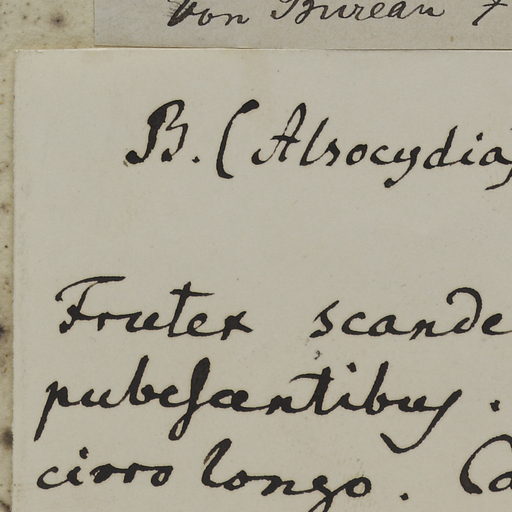 von Bureau
B. (Alsocydia)
Frutex scande
pubescentibus.
cirro longo. Ca